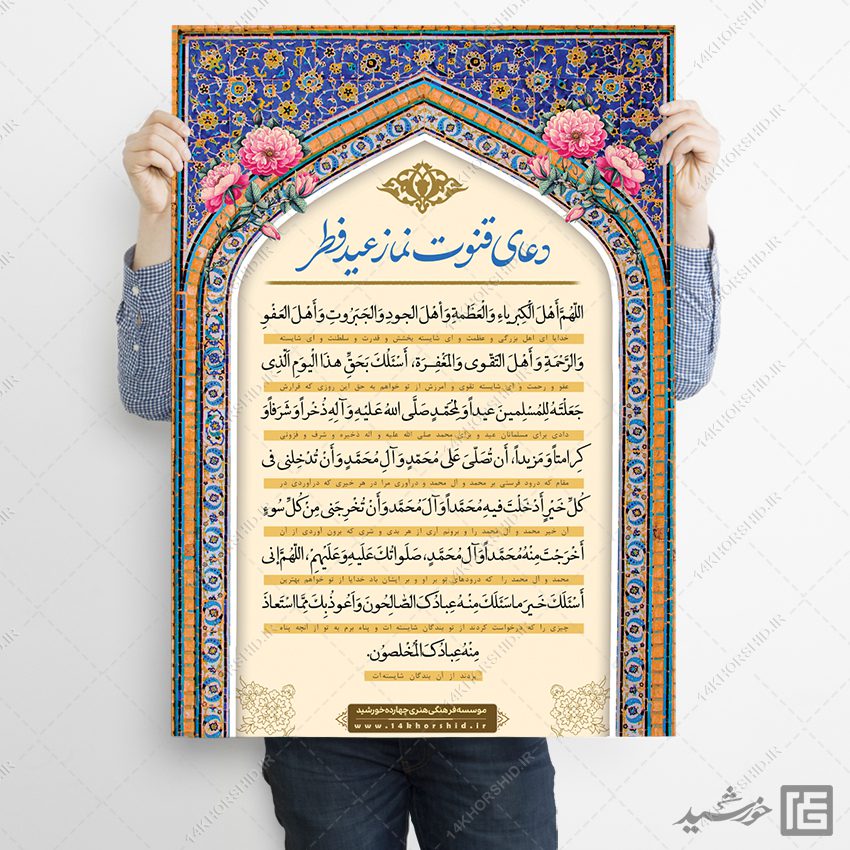 دعای قنوت نماز عید فطر
اللّهُمَّ أَهْلَ الْكِبْرِیاءِ وَالْعَظَمَةِ وَأَهْلَ الْجودِ وَالْجَبَروتِ وَأَهْلَ الْعَفْوِ
خدایا ای اهل بزرگی و عظمت و ای شایسته بخشش و قدرت و سلطنت و ای شایسته
وَالرَّحْمَةِ وَأَهْلَ التَّقْوى وَالْمَغْفِرَةِ، أَسْئَلُكَ بِحَقِّ هذَا الْیَومِ الَّذِی
عفو و رحمت و ای شایسته تقوی و آمرزش از تو خواهم به حق این روزی که قرارش
جَعَلْتَهُ لِلْمُسْلِمینَ عیداً وَلِمُحَمَّدٍ صَلَّى اللهُ عَلَیْهِ وَآلِهِ ذُخْراً وَشَرَفاً وَ
دادی برای مسلمانان عید و برای محمد صلی الله علیه و آله ذخیره و شرف و فزونی
كِرامَتاً وَمَزیداً، أَن تُصَلِّیَ عَلى مُحَمَّدٍ وَآلِ مُحَمَّدٍ وَأَنْ تُدْخِلَنی فی
مقام که درود فرستی بر محمد و آل محمد و درآوری مرا در هر خیری که درآوردی در
كُلِّ خَیْرٍ أَدْخَلْتَ فیهِ مُحَمَّداً وَآلَ مُحَمَّدٍ وَأَنْ تُخْرِجَنی مِنْ كُلِّ سُوءٍ
آن خیر محمد و آل محمد را و برونم آری از هر بدی و شری که برون آوردی از آن
أَخْرَجْتَ مِنْهُ مُحَمَّداً وَآلَ مُحَمَّدٍ، صَلَواتُكَ عَلَیْهِ وَعَلَیْهِمْ، اللّهُمَّ إِنی
محمد و آل محمد را که درودهای تو بر او و بر ایشان باد خدایا از تو خواهم بهترین
أَسْئَلُكَ خَیرَ ما سَئَلَكَ مِنْهُ عِبادُكَ الصّالِحُونَ وَأَعُوذُ بِكَ مِمَّا اسْتَعاذَ
چیزی را که درخواست کردند از تو بندگان شایسته ات و پناه برم به تو از آنچه پناه
مِنْهُ عِبادُكَ الْمُخْلِصُونَ.
بردند از آن بندگان شایسته‌ات
موسسه فرهنگی هنری چهارده خورشید
www.14khorshid.ir
خورشید
14KHORSHID.IR